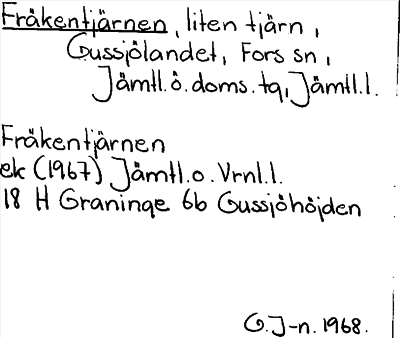 Fräkentjärnen, liten tjärn,
Gussjölandet, Fors sn,
Jämtl.ö.doms.tg, Jämtl.l.
Fräkentjärnen
ek (1967) Jämtl.o.Vrnl.l.
18 H Graninge 6b Gussjöhöjden
G.J-n. 1968.